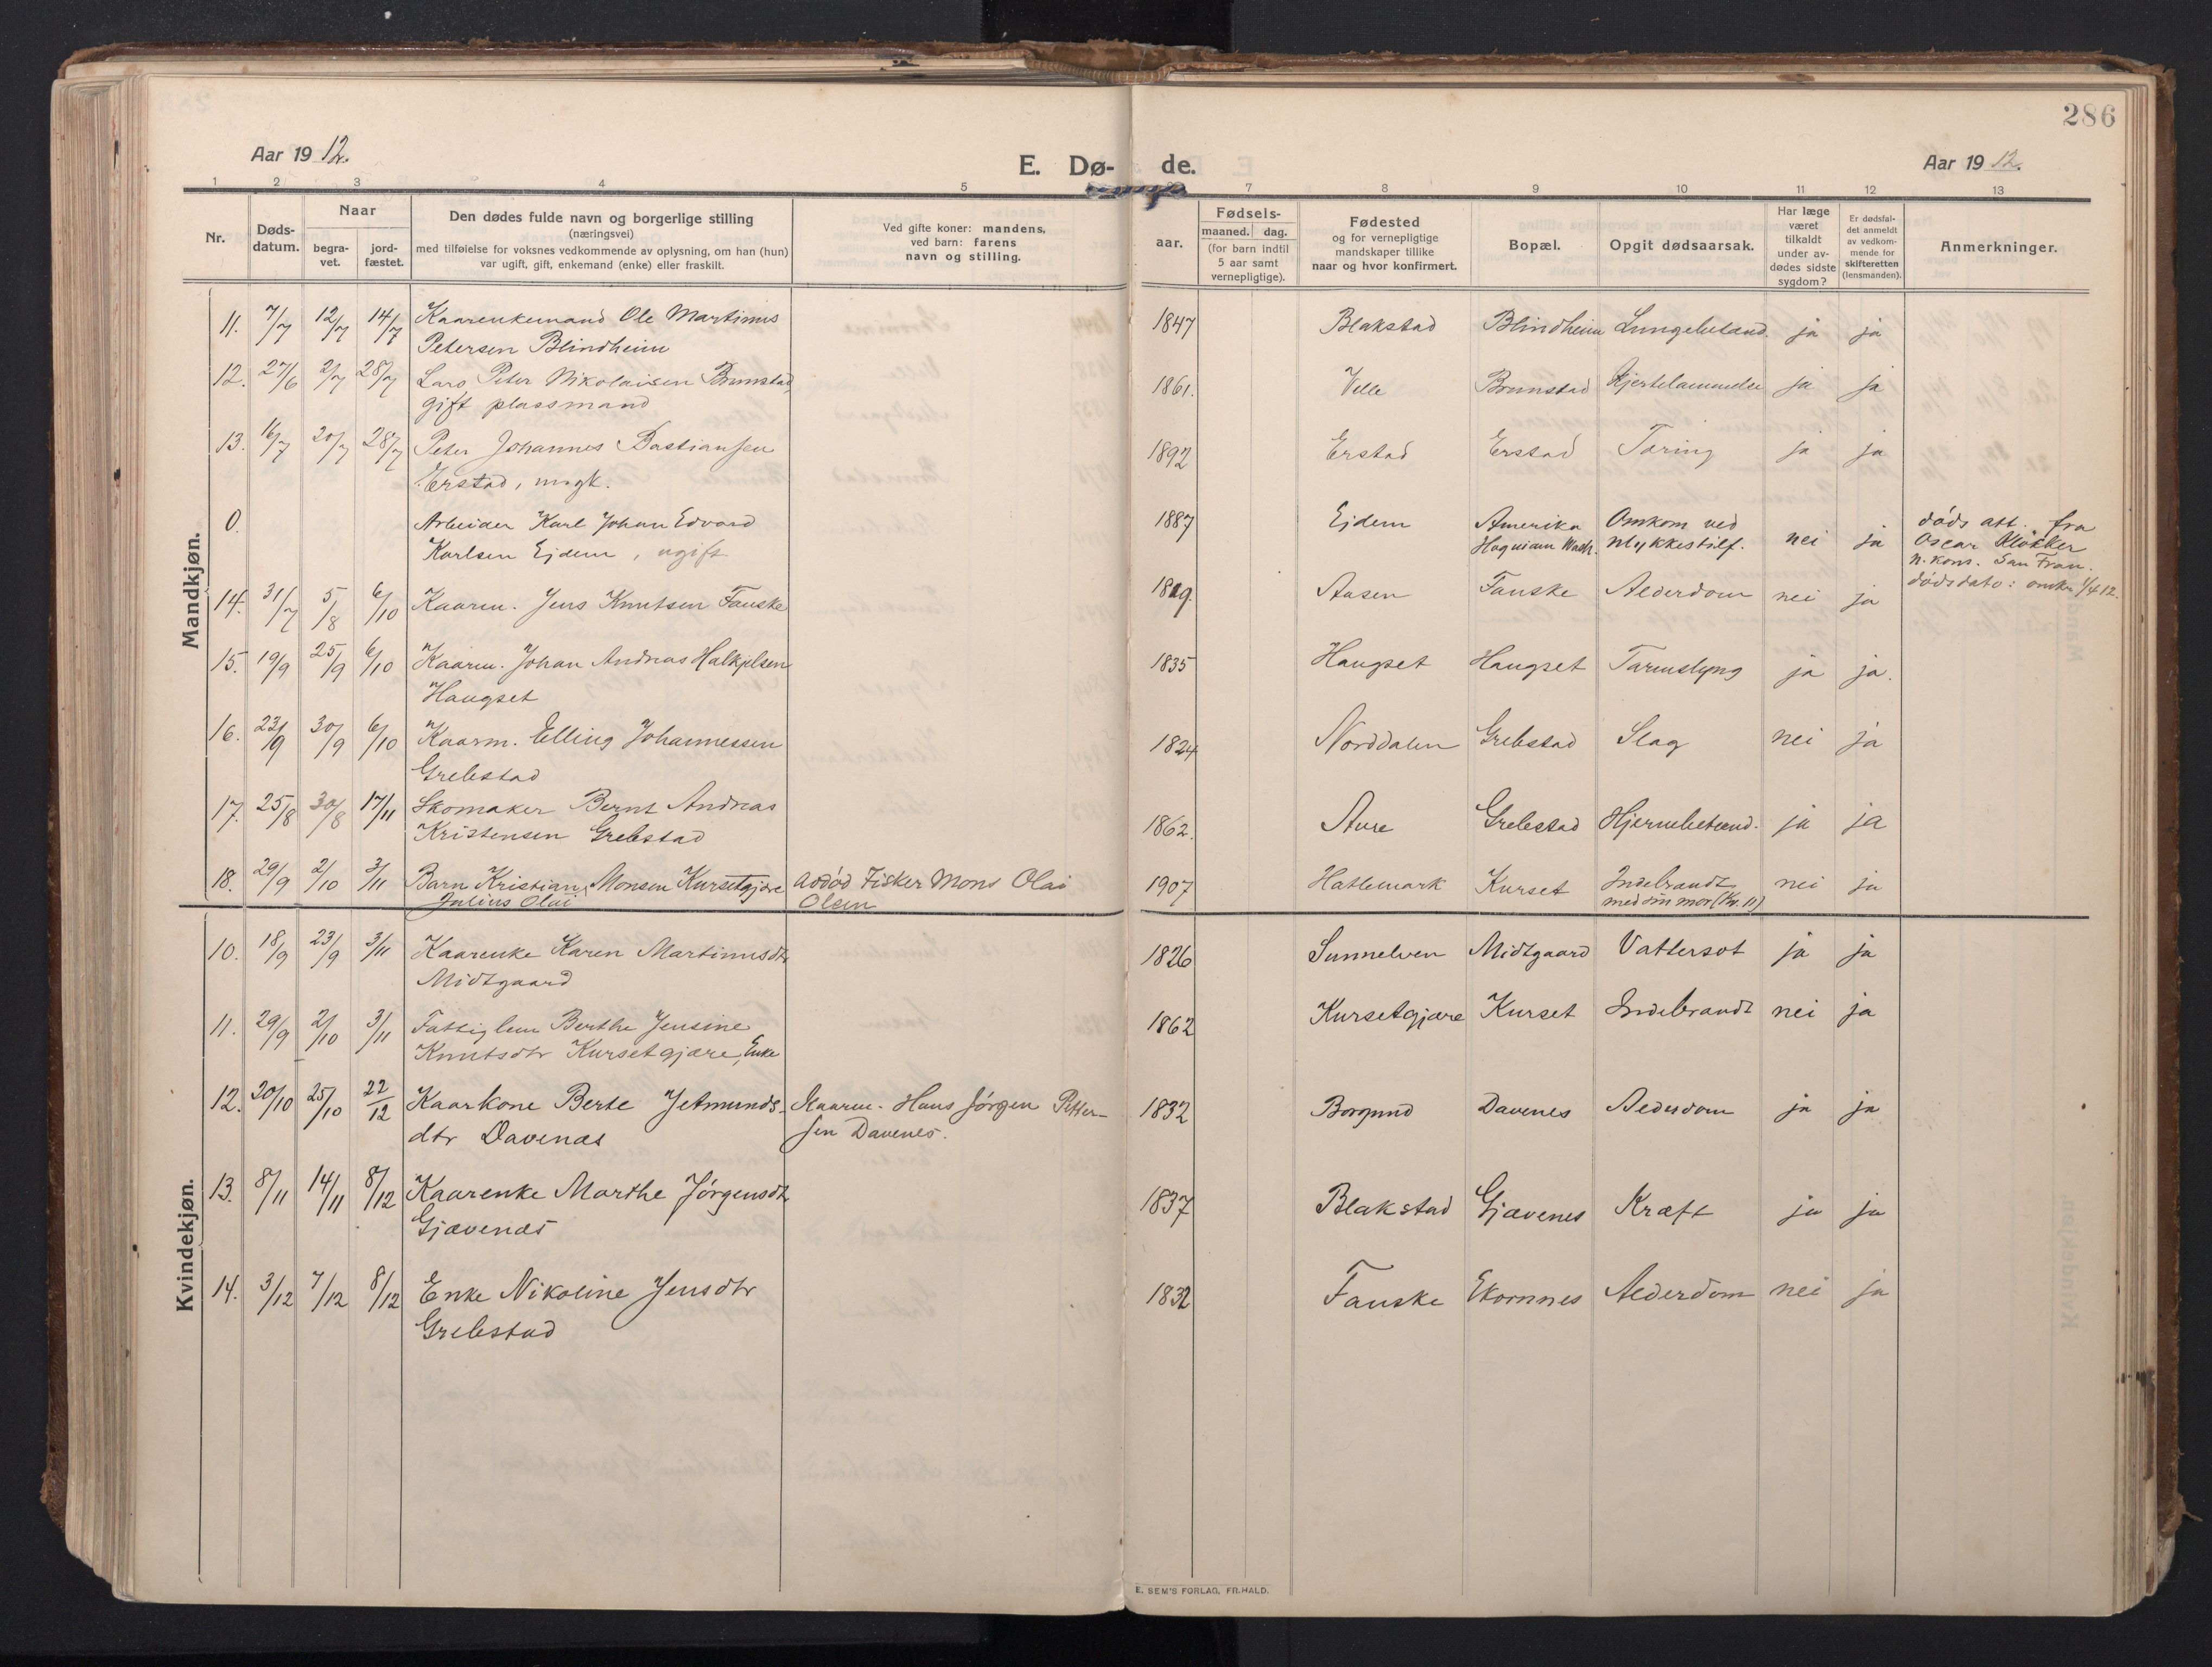 286
Aar 1912.
E. Dø-
de.
Aar 1912.
1 2 3 4 5 7 8 9 10 11 12 13
Nr.
Døds-
datum.
Naar
begra-
vet.
jord-
fæstet.
Den dødes fulde navn og borgerlige stilling
(næringsvei)
med tilføielse for voksnes vedkommende av oplysning, om han (hun)
var ugift, gift, enkemand (enke) eller fraskilt.
Ved gifte koner: mandens,
ved barn: farens
navn og stilling.
aar.
Fødsels-
maaned. dag.
(for barn indtil
5 aar samt
vernepligtige).
Fødested
og for vernepligtige
mandskaper tillike
naar og hvor konfirmert.
Bopæl.
Opgit dødsaarsak.
Har læge
været
tilkaldt
under av-
dødes sidste
sygdom?
Er dødsfal-
det anmeldt
av vedkom-
mende for
skifteretten
(lensmanden).
Anmerkninger.
Mandkjøn.
11. 7/7 12/7 14/7 Kaarenkemand Ole Martinus 1847 Blakstad Blindheim Lungebetænd. ja ja
Petersen Blindheim
12. 27/6 2/7 28/7 Lars Peter Nikolaisen Brunstad, 1861. Velle Brunstad Hjertelammelse ja ja
gift plassmand
13. 16/7 20/7 28/7 Peter Johannes Bastiansen 1892 Erstad Erstad Tæring ja ja
Erstad, ungk.
0. Arbeider Karl Johan Edvard 1887 Ejdem Amerika Omkom ved nei ja døds att. fra
Karlsen Ejdem, ugift Hoquiam Wash. ulykkestilf. Oscar Kløkker
n. kons. San Fran.
dødsdato: omkr. 1/4 12.
14. 31/7 5/8 6/10 Kaarm. Jens Knutsen Fauske 1829. Aasen Fauske Alderdom nei ja
15. 19/9 25/9 6/10 Kaarm. Johan Andreas Halkjelsen 1835 Haugset Haugset Tarmslyng ja ja.
Haugset
16. 23/9 30/9 6/10 Kaarm. Elling Johannessen 1824 Norddalen Grebstad Slag nei ja
Grebstad
17. 25/8 30/8 17/11 Skomaker Bernt Andreas 1862. Aure Grebstad Hjernebetænd. ja ja
Kristensen Grebstad
18. 29/9 2/10 3/11 Barn Kristian Monsen Kursetgjære avdød Fisker Mons Olai 1907 Hattemark Kurset Indebrændt nei ja
Julius Olai Olsen med sin mor (Kv. 11)
Kvindekjøn.
10. 18/9 23/9 3/11 Kaarenke Karen Martinusdtr 1826 Sunnelven Midtgaard Vattersot ja ja
Midtgaard
11. 29/9 2/10 3/11 Fattiglem Berthe Jensine 1862 Kursetgjære Kurset Indebrændt nei ja
Knutsdtr Kursetgjære, Enke
12. 20/10 25/10 22/12 Kaarkone Berte Jetmunds- Kaarm. Hans Jørgen Petter- 1832 Borgund Davenes Alderdom ja ja
dtr Davenæs sen Davenes.
13. 8/11 14/11 8/12 Kaarenke Marthe Jørgensdtr 1837 Blakstad Gjævenes Kræft ja ja
Gjævenæs
14. 3/12 7/12 8/12 Enke Nikoline Jensdtr 1832 Fauske Ekornnes Alderdom nei ja
Grebstad
E. SEM'S FORLAG, FR.HALD.